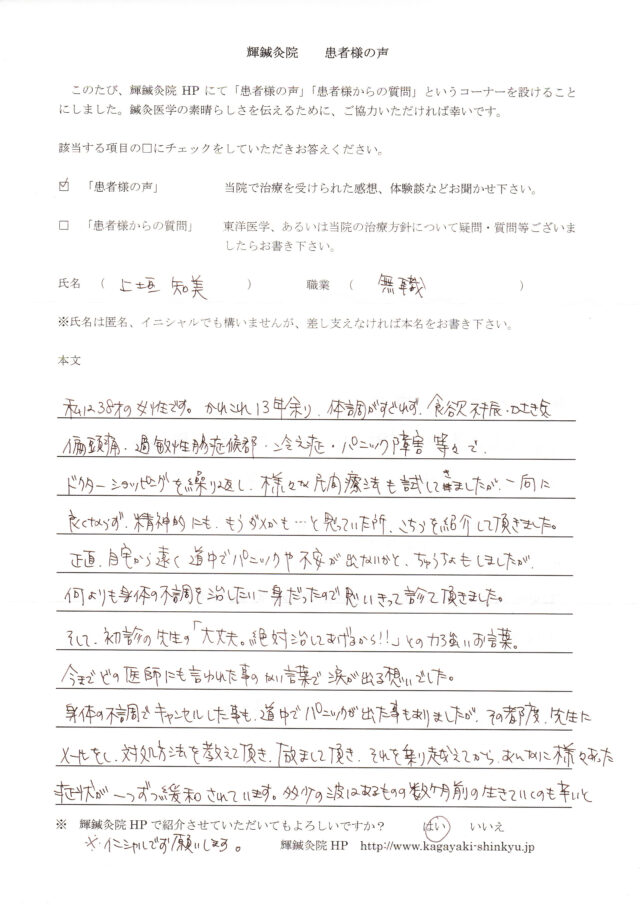 輝鍼灸院　　患者様の声
このたび、輝鍼灸院 HP にて「患者様の声」「患者様からの質問」というコーナーを設けること
にしました。鍼灸医学の素晴らしさを伝えるために、ご協力いただければ幸いです。
該当する項目の□にチェックをしていただきお答えください。
☑　「患者様の声」　　当院で治療を受けられた感想、体験談などお聞かせ下さい。
□　「患者様からの質問」　　東洋医学、あるいは当院の治療方針について疑問・質問等ございま
したらお書き下さい。
氏名　（　上垣 知美　）　　職業　（　無職　）
※氏名は匿名、イニシャルでも構いませんが、差し支えなければ本名をお書き下さい。
本文
私は38才の女性です。かれこれ13年余り、体調がすぐれず、食欲不振・吐き気
偏頭痛・過敏性腸症候郡・冷え症・パニック障害 等々で、
ドクターショッピングを繰り返し、様々な民間療法も試してきましたが、一向に
良くならず、精神的にも、もうダメかも…と思っていた所、こちらを紹介して頂きました。
正直、自宅から遠く道中でパニックや不安が出ないかと、ちゅうちょもしましたが、
何よりも身体の不調を治したい一身だったので思いきって診て頂きました。
そして、初診の先生の「大丈夫。絶対治してあげるから!!」との力強いお言葉。
今までどの医師にも言われた事のない言葉で涙が出る想いでした。
身体の不調でキャンセルした事も、道中でパニックが出た事もありましたが、その都度、先生に
メールをし、対処方法を教えて頂き、励まして頂き、それを乗り越えてから、あんなに様々あった
症状が一つずつ緩和されています。多少の波はあるものの数ヶ月前の生きていくのも辛いと
※　輝鍼灸院 HP で紹介させていただいてもよろしいですか？　　はい　　いいえ
※イニシャルでお願いします。　　輝鍼灸院 HP　http://www.kagayaki-shinkyu.jp